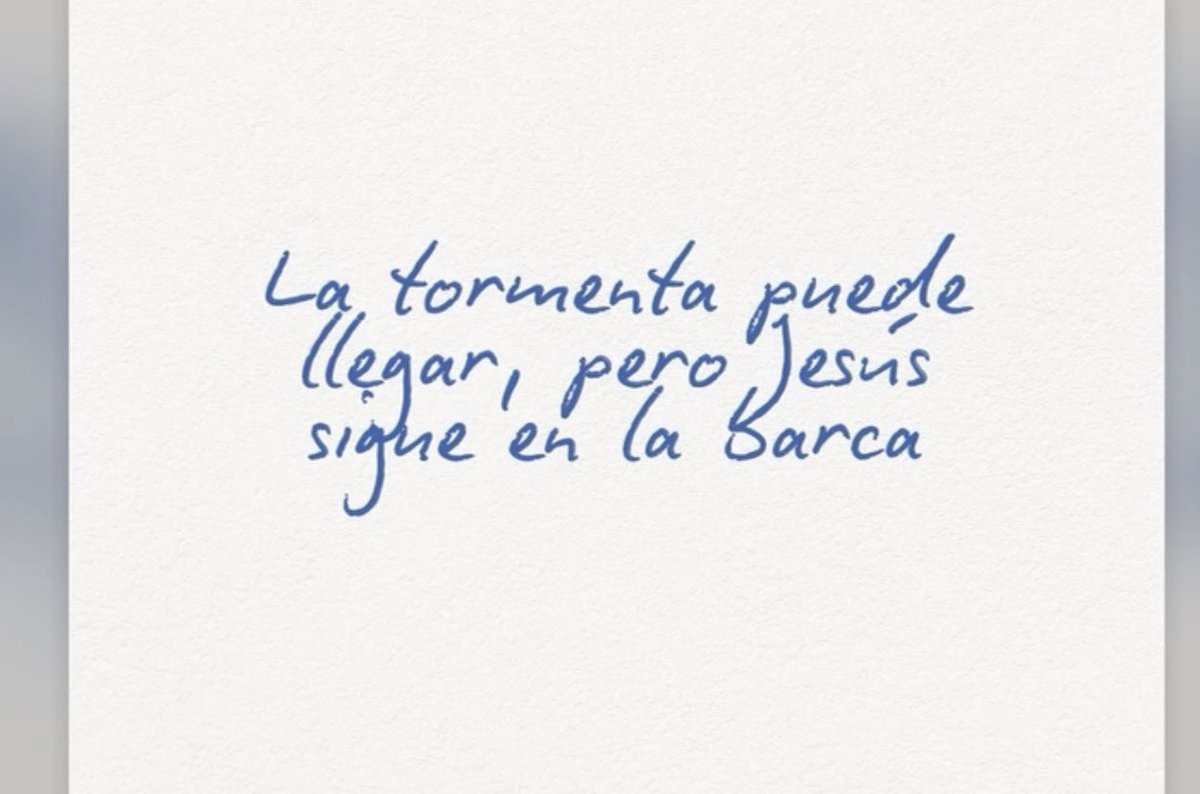 La tormenta puede
llegar, pero Jesús
sigue en la Barca